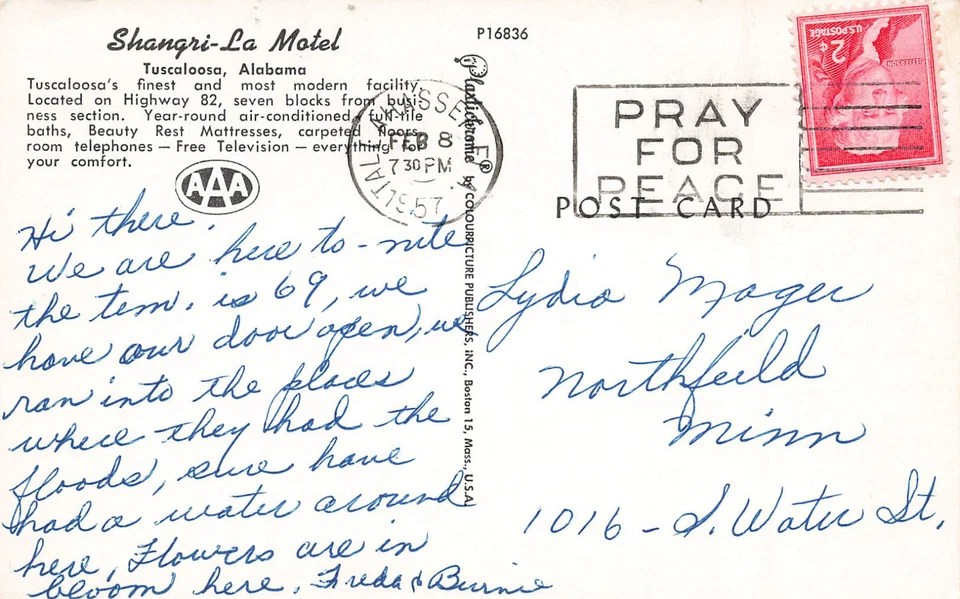 Shangri-La Motel
Tuscaloosa, Alabama
Tuscaloosa's finest and most modern facility.
Located on Highway 82, seven blocks from busi-
ness section. Year-round air-conditioned, full-tile
baths, Beauty Rest Mattresses, carpeted floors,
room telephones — Free Television — everything for
your comfort.
AAA
Hi there.
We are here to-nite
the tem. is 69, we
have our door open, we
ran into the places
where they had the
floods, sure have
had a water around
here, Flowers are in
bloom here. Freda & Burnie
P16836
Plastichrome ® by COLOURPICTURE PUBLISHERS, INC., Boston 15, Mass., U.S.A.
TALLAHASSEE, FLA.
FEB 8
7 30 PM
1957
PRAY
FOR
PEACE
U.S. POSTAGE
2¢
JEFFERSON
POST CARD
Lydia Mager
Northfield
Minn
1016 - S. Water St.